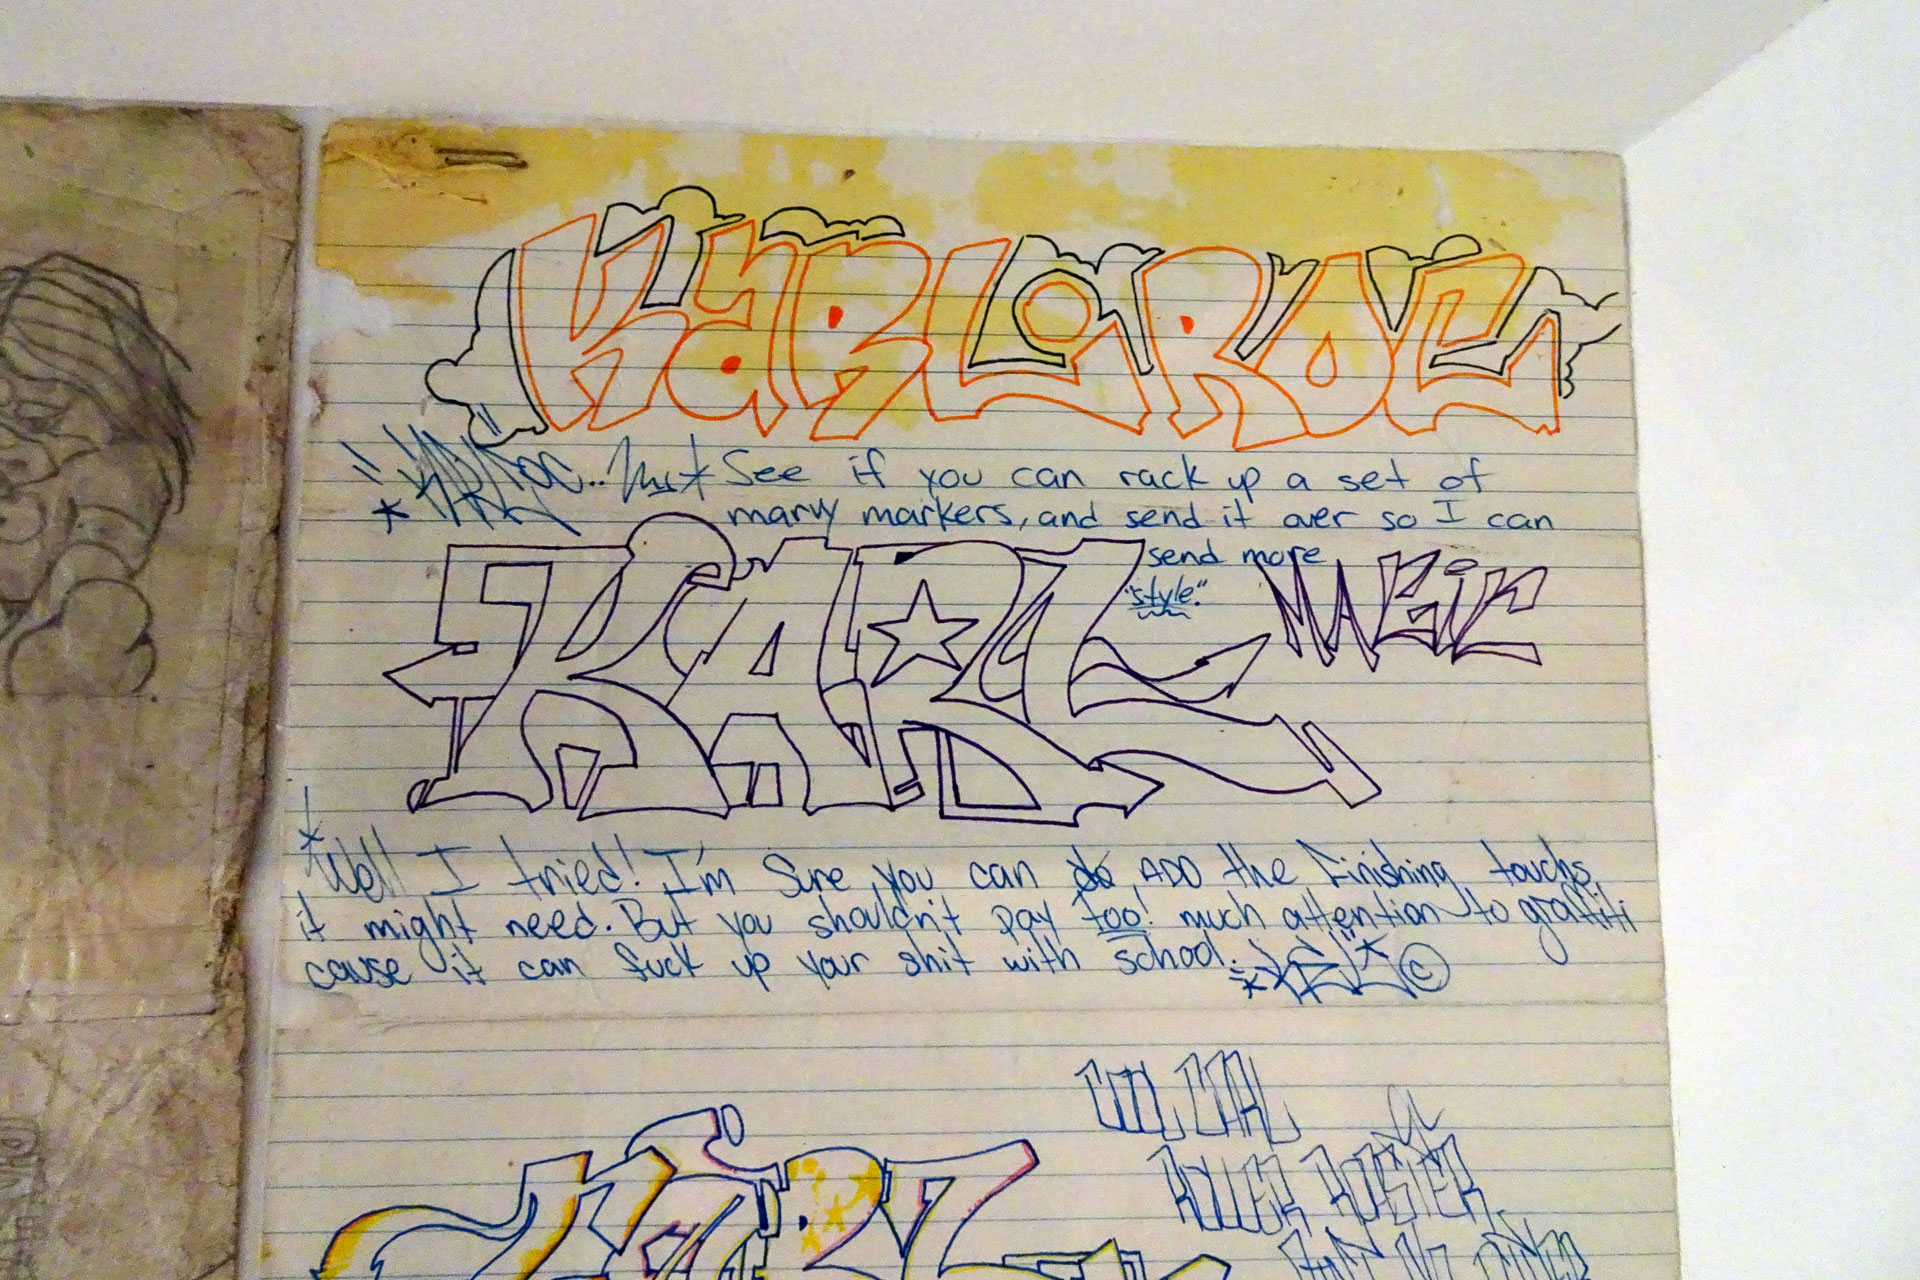 KARLOROC
See if you can rack up a set of
marvy markers, and send it over so I can
send more
"style."
KARL
Well I tried! I'm Sure you can do ADD the Finishing touchs
it might need. But you shouldn't pay too! much attention to graffiti
cause it can fuck up your shit with school.
©
KARL
ROLLER